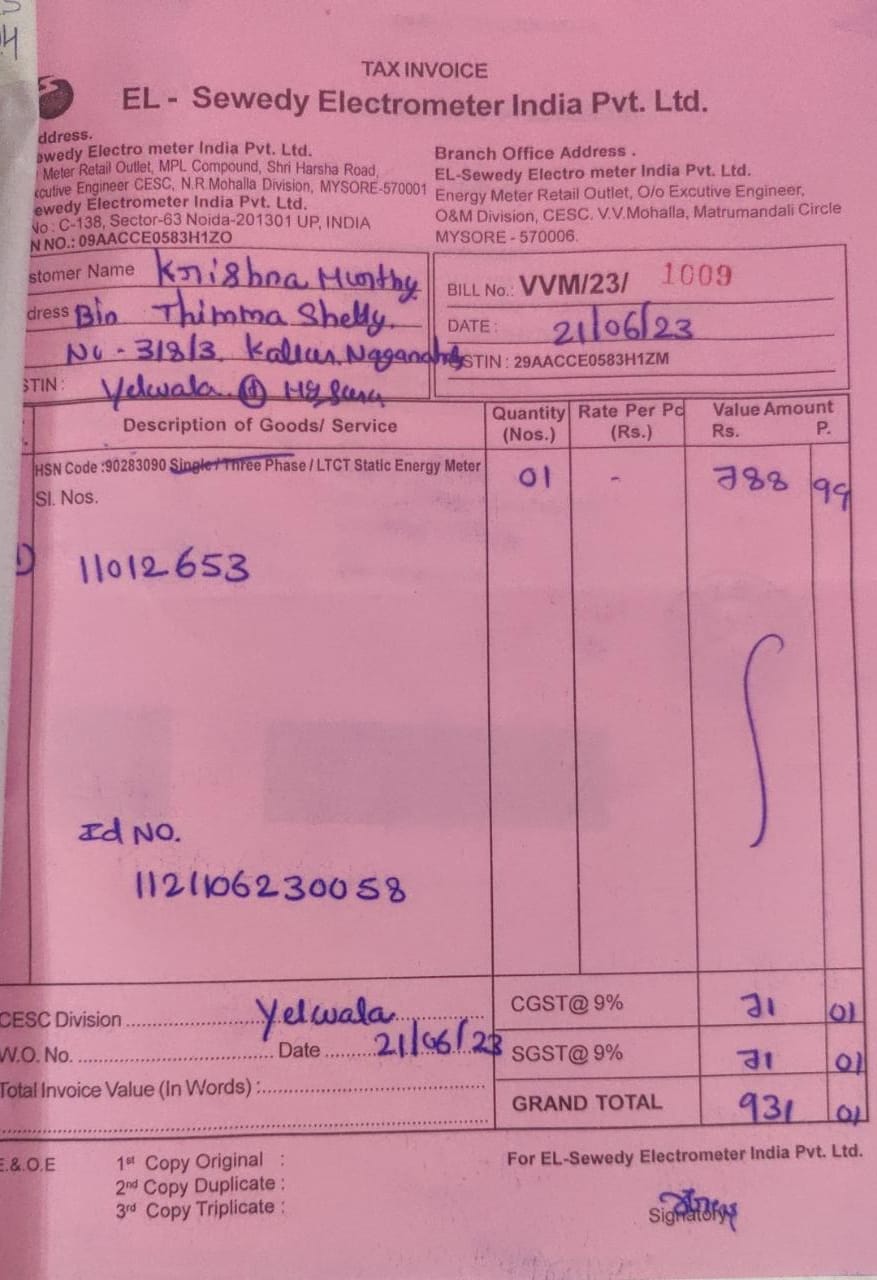 TAX INVOICE
EL - Sewedy Electrometer India Pvt. Ltd.
ddress.
ewedy Electro meter India Pvt. Ltd.
Meter Retail Outlet, MPL Compound, Shri Harsha Road,
xcutive Engineer CESC, N.R.Mohalla Division, MYSORE-570001
ewedy Electrometer India Pvt. Ltd.
No : C-138, Sector-63 Noida-201301 UP, INDIA
N NO.: 09AACCE0583H1ZO
Branch Office Address .
EL-Sewedy Electro meter India Pvt. Ltd.
Energy Meter Retail Outlet, O/o Excutive Engineer,
O&M Division, CESC. V.V.Mohalla, Matrumandali Circle
MYSORE - 570006.
stomer Name Krishna Murthy
dress Bin Thimma Shetty.
No - 318/3,
Yelwala
STIN :
BILL No.: VVM/23/ 1009
DATE : 21/06/23
STIN : 29AACCE0583H1ZM
Description of Goods/ Service Quantity (Nos.) Rate Per Pc (Rs.) Value Amount Rs. P.
HSN Code :90283090 Single / Three Phase / LTCT Static Energy Meter 01 - 788 99
Sl. Nos.
1) 11012653
Id NO.
1121106230058
CESC Division Yelwala CGST@ 9% 71 01
W.O. No. Date 21/06/23 SGST@ 9% 71 01
Total Invoice Value (In Words) : GRAND TOTAL 931 01
E.&.O.E
1st Copy Original :
2nd Copy Duplicate :
3rd Copy Triplicate :
For EL-Sewedy Electrometer India Pvt. Ltd.
Signatory